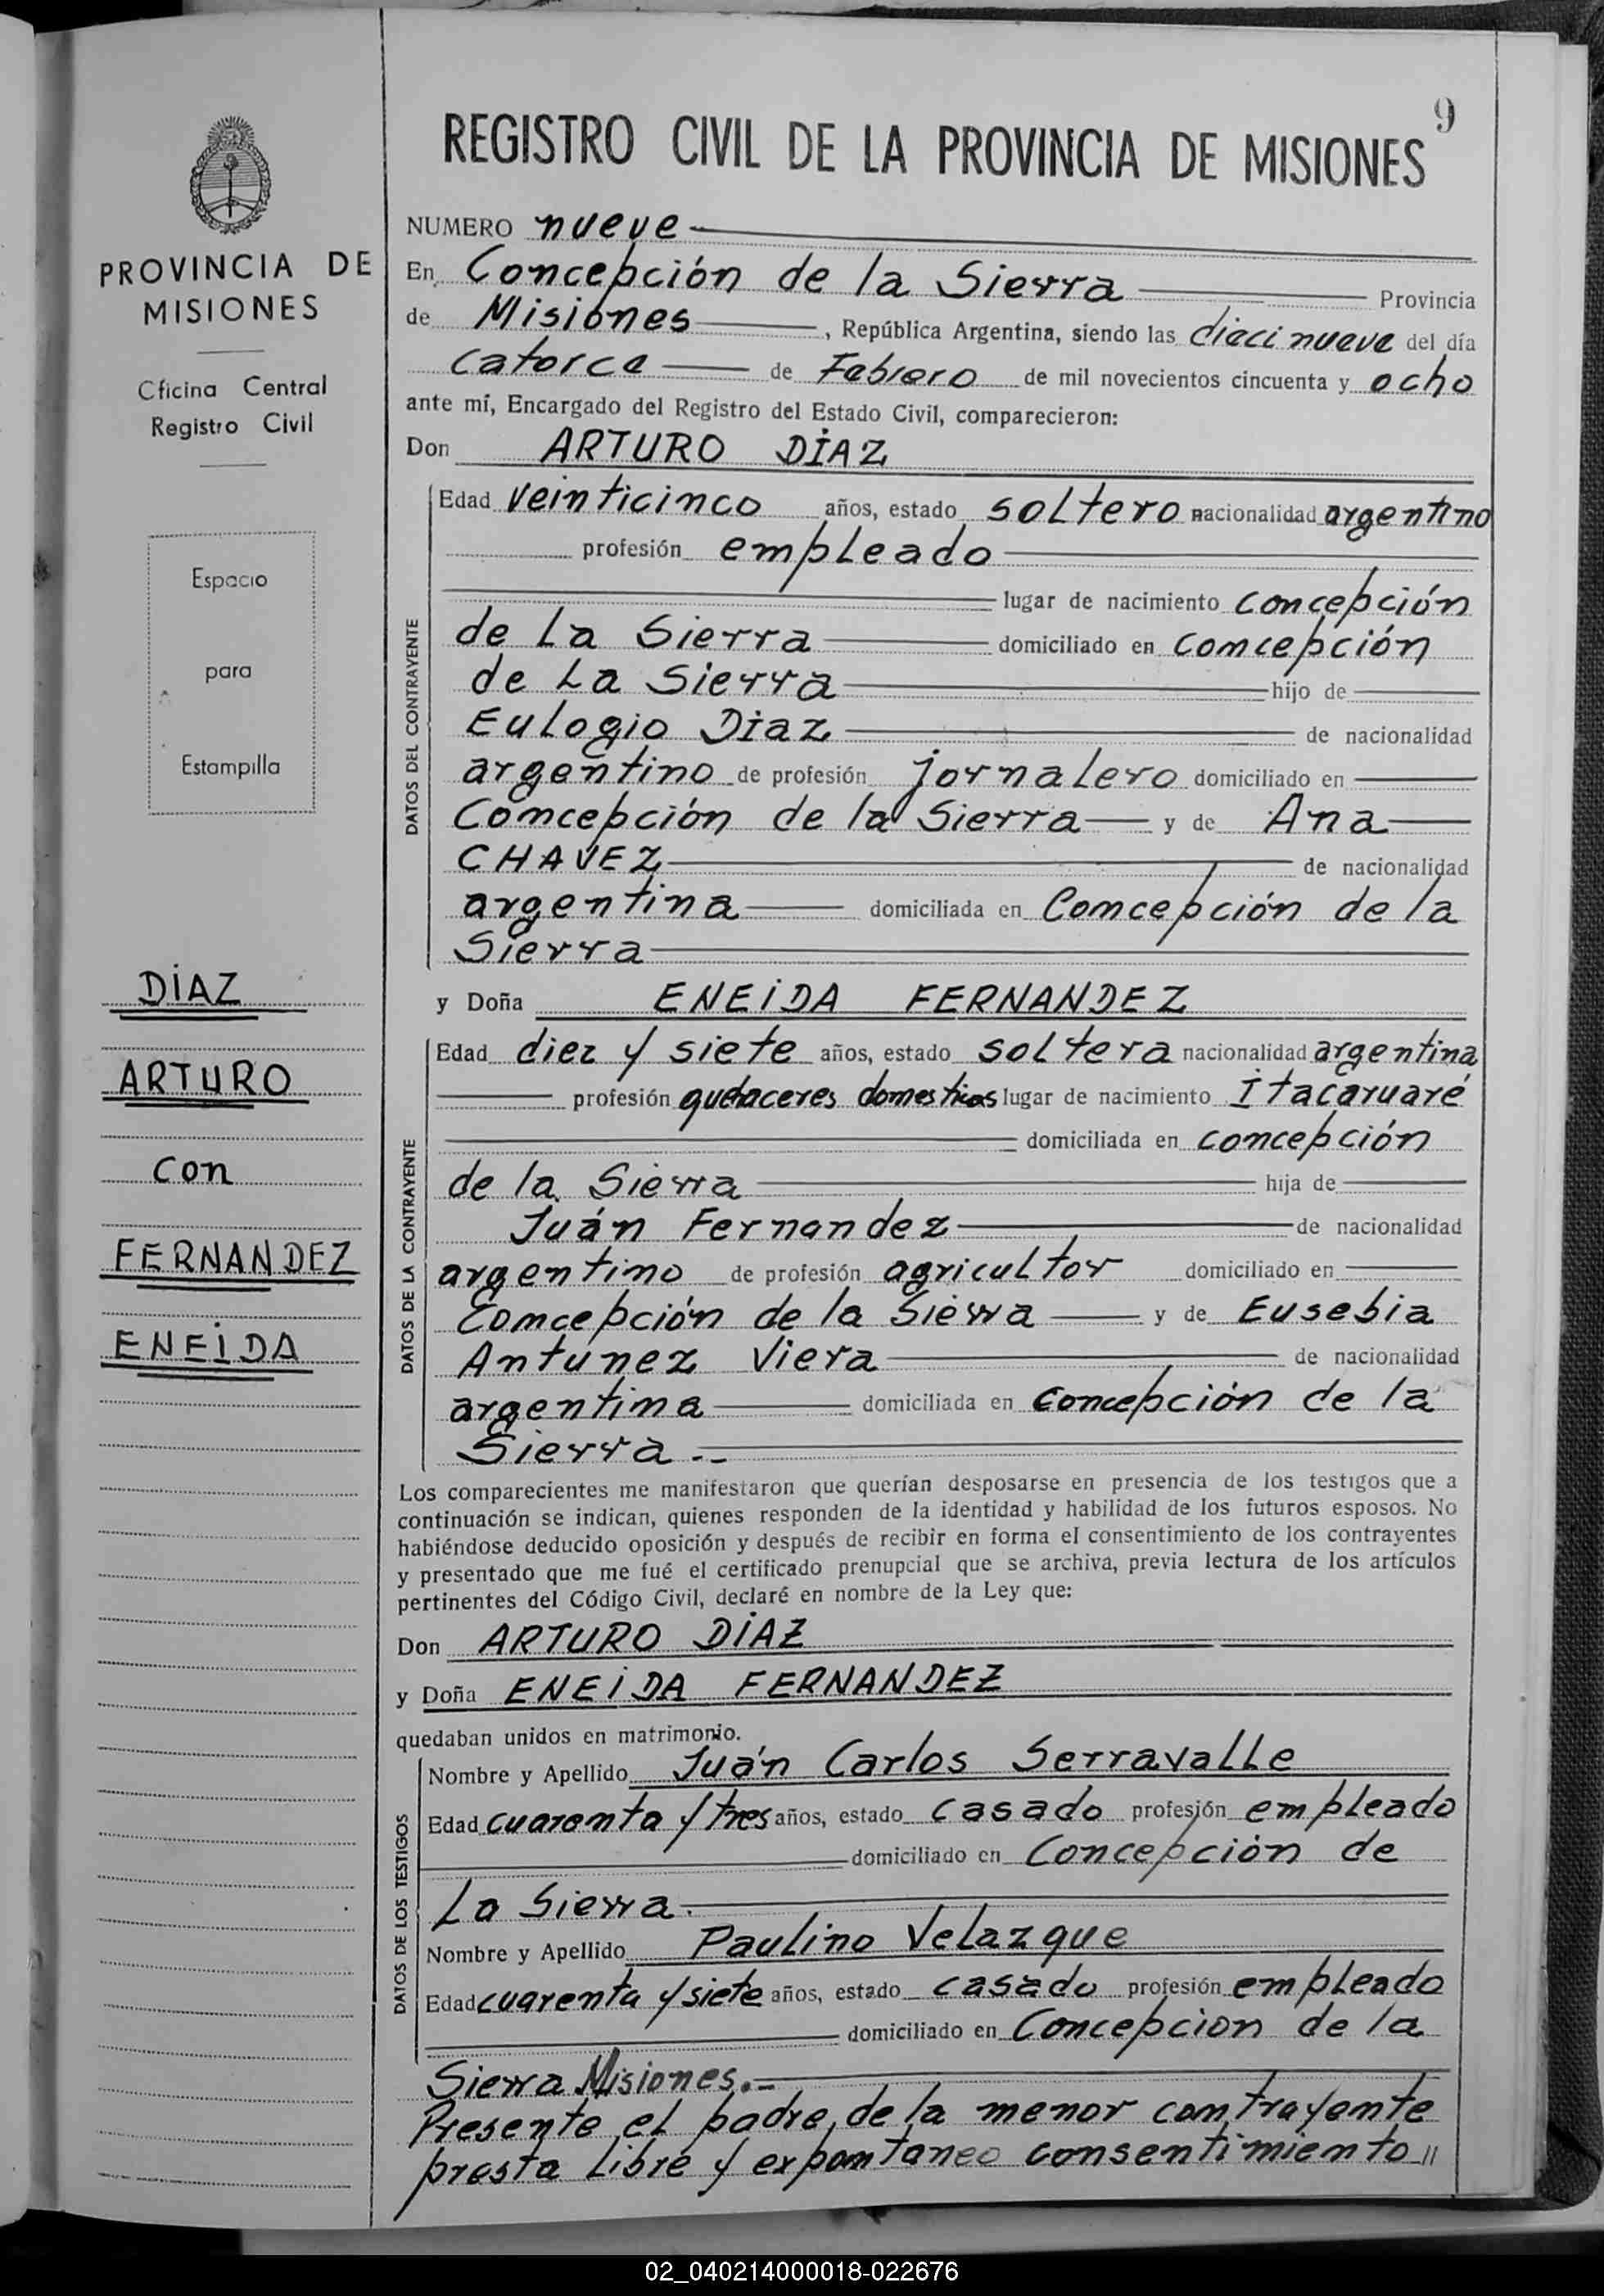 9
REGISTRO CIVIL DE LA PROVINCIA DE MISIONES
PROVINCIA DE
MISIONES
Oficina Central
Registro Civil
Espacio
para
Estampilla
DIAZ
ARTURO
con
FERNANDEZ
ENEIDA
NUMERO nueve
En Concepción de la Sierra Provincia
de Misiones, República Argentina, siendo las dieci nueve del día
catorce de Febrero de mil novecientos cincuenta y ocho
ante mí, Encargado del Registro del Estado Civil, comparecieron:
Don ARTURO DIAZ
DATOS DEL CONTRAYENTE
Edad veinticinco años, estado soltero nacionalidad argentino
profesión empleado
lugar de nacimiento Concepción
de La Sierra domiciliado en Comcepción
de La Sierra hijo de
Eulogio Diaz de nacionalidad
argentino de profesión jornalero domiciliado en
Comcepción de la Sierra y de Ana
CHAVEZ de nacionalidad
argentina domiciliada en Comcepción de la
Sierra
y Doña ENEIDA FERNANDEZ
DATOS DE LA CONTRAYENTE
Edad diez y siete años, estado soltera nacionalidad argentina
profesión quehaceres domesticos lugar de nacimiento Itacaruaré
domiciliada en concepción
de la Sierra hija de
Juán Fernandez de nacionalidad
argentino de profesión agricultor domiciliado en
Comcepción de la Sierra y de Eusebia
Antunez Viera de nacionalidad
argentina domiciliada en Concepción de la
Sierra.--
Los comparecientes me manifestaron que querían desposarse en presencia de los testigos que a
continuación se indican, quienes responden de la identidad y habilidad de los futuros esposos. No
habiéndose deducido oposición y después de recibir en forma el consentimiento de los contrayentes
y presentado que me fué el certificado prenupcial que se archiva, previa lectura de los artículos
pertinentes del Código Civil, declaré en nombre de la Ley que:
Don ARTURO DIAZ
y Doña ENEIDA FERNANDEZ
quedaban unidos en matrimonio.
DATOS DE LOS TESTIGOS
Nombre y Apellido Juán Carlos Serravalle
Edad cuarenta y tres años, estado casado profesión empleado
domiciliado en Concepción de
La Sierra.
Nombre y Apellido Paulino Velazque
Edad cuarenta y siete años, estado casado profesión empleado
domiciliado en Concepcion de la
Sierra Misiones.--
Presente el padre de la menor contrayente
presta libre y expontaneo consentimiento //
02_040214000018-022676